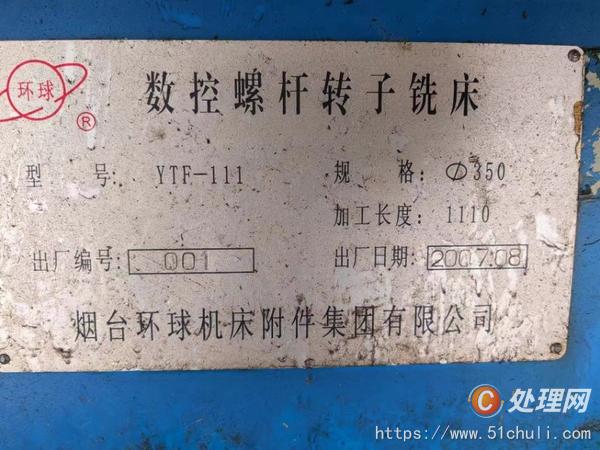 环球
®
数控螺杆转子铣床
型 号: YTF-111
规 格: Φ350
加工长度: 1110
出厂编号: 001
出厂日期: 2007.08
烟台环球机床附件集团有限公司
C处理网
https://www.51chuli.com/